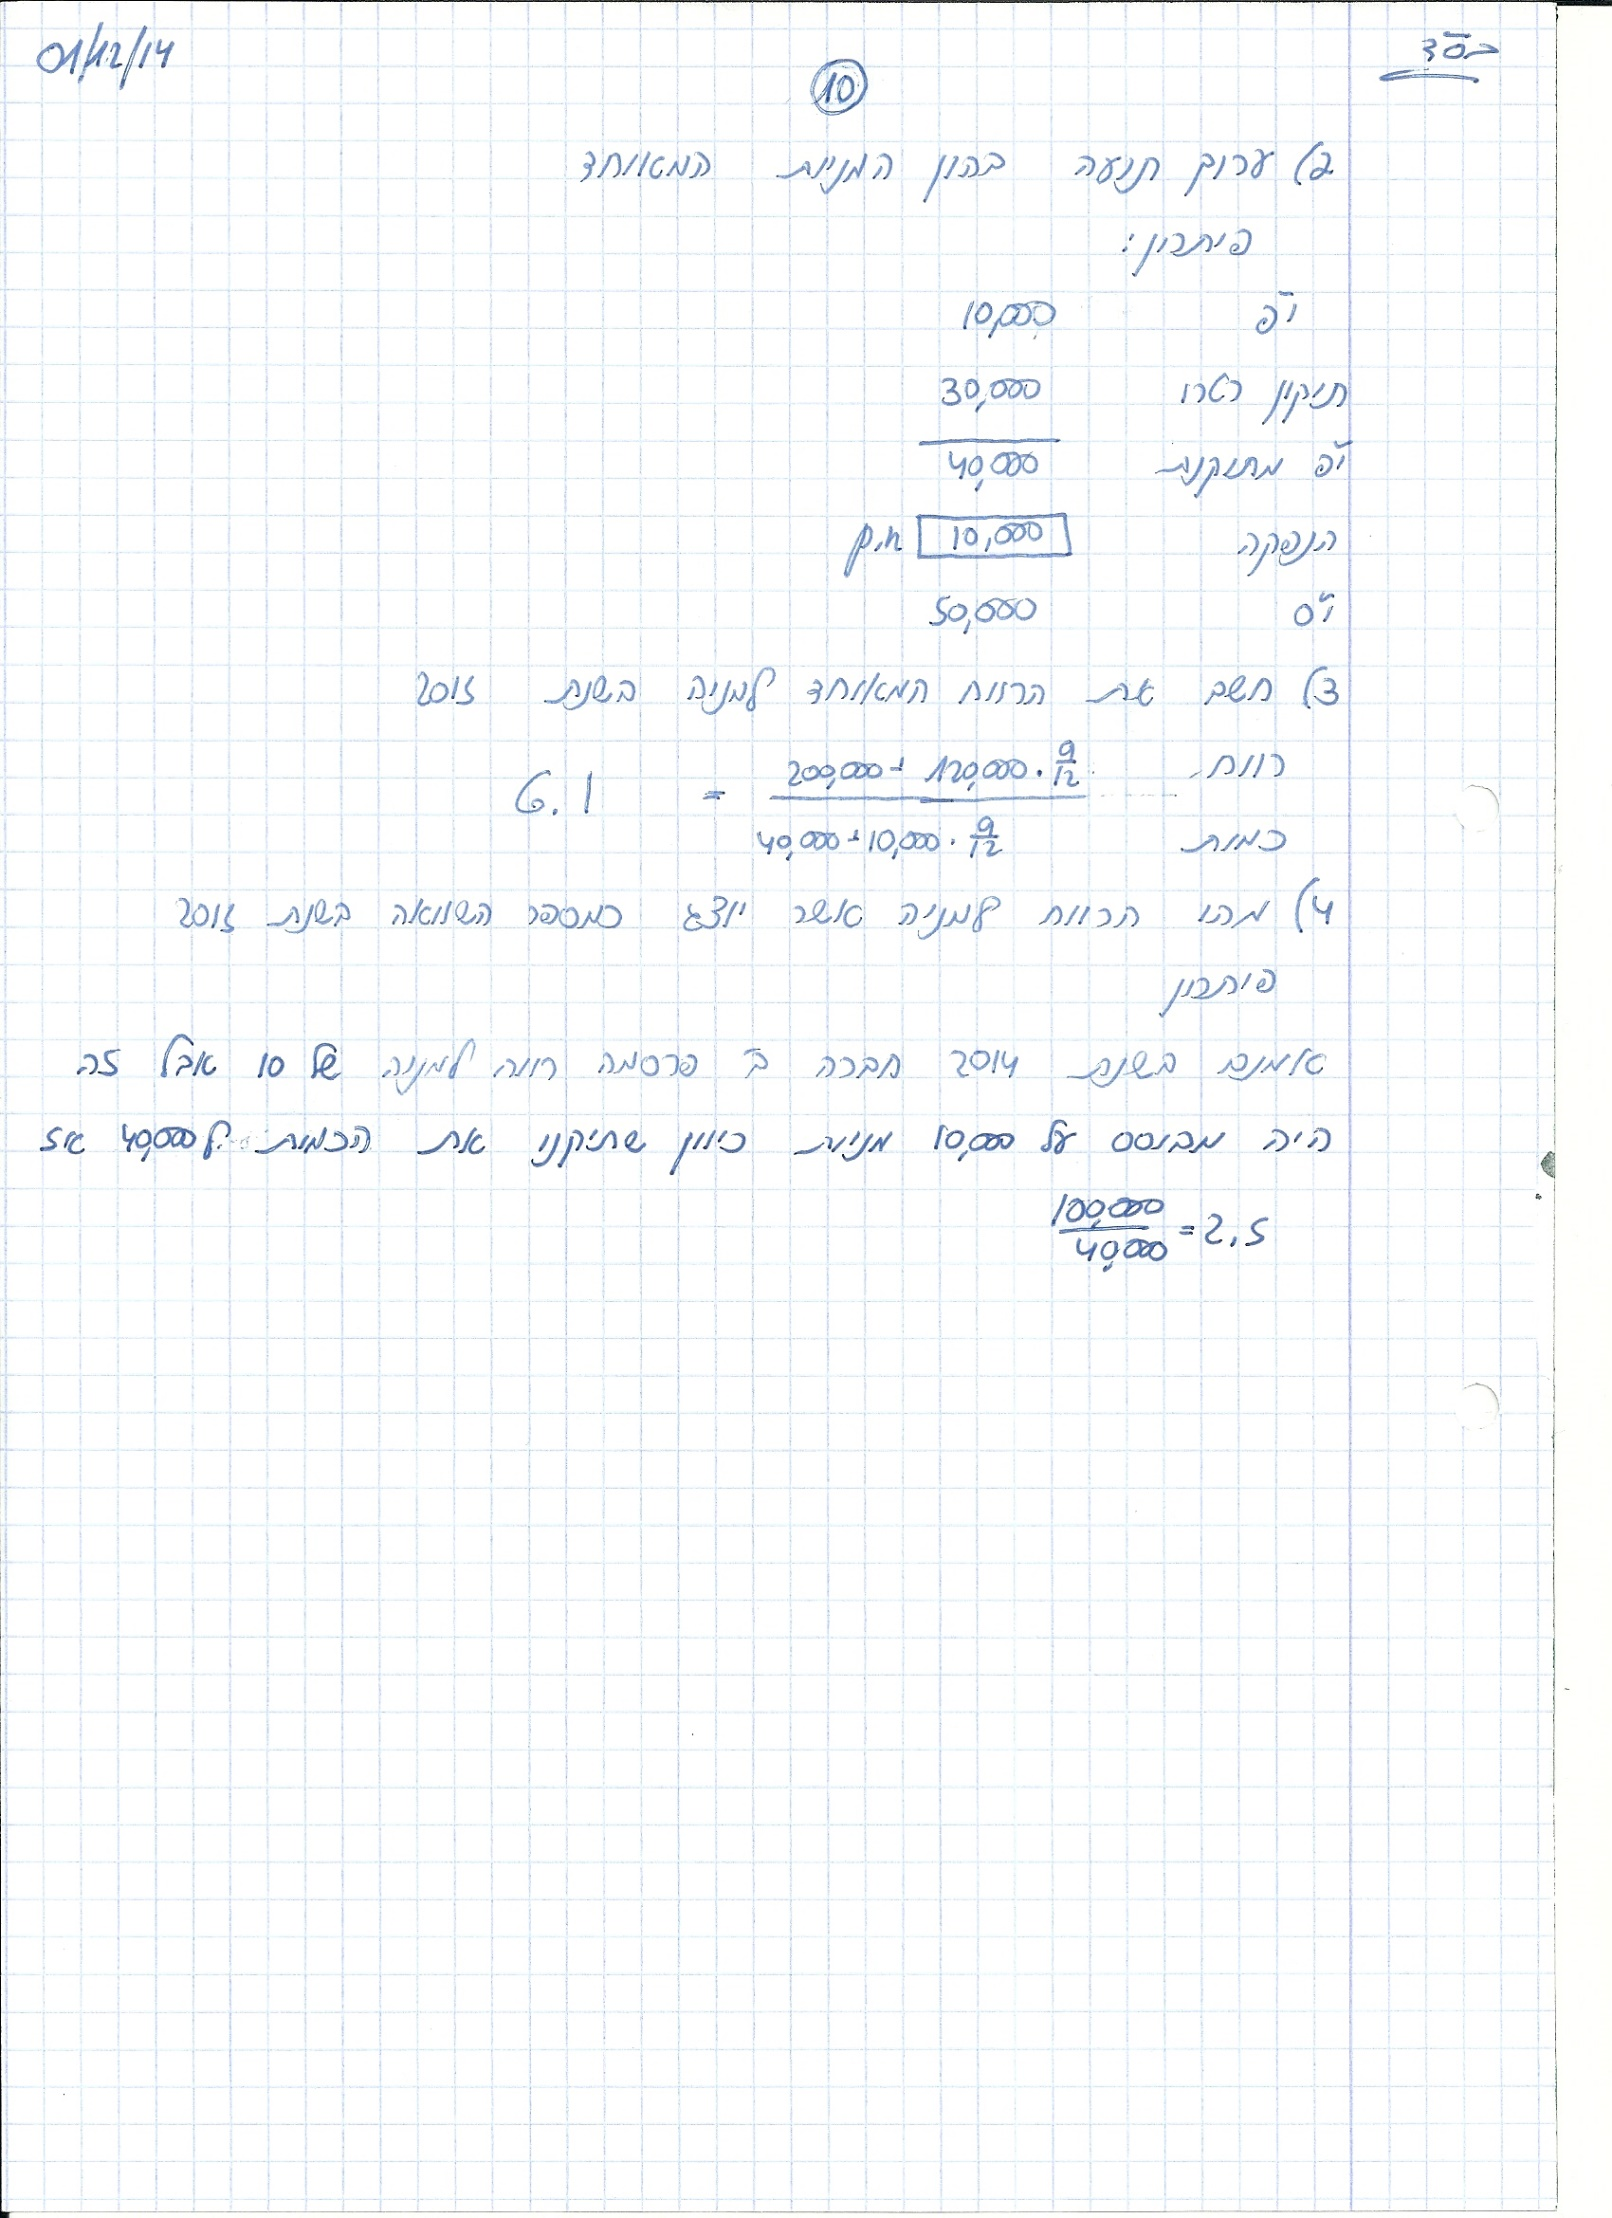 בס"ד
01/12/14
10
2) ערוך תנועה בהון המניות המאוחד
פיתרון:
י"פ 10,000
תיקון רטרו 30,000
י"פ מתוקנת 40,000
הנפקה 10,000 מ.ק
י"ס 50,000
3) חשב את הרווח המאוחד למניה בשנת 2015
רווח 200,000 + 120,000 · 9/12 = 6.1
כמות 40,000 + 10,000 · 9/12
4) מהו הרווח למניה אשר יוצג כמספר השוואה בשנת 2015
פיתרון
אומנם בשנת 2014 חברה ב' פרסמה רווח למניה של 10 אבל זה
היה מבוסס על 10,000 מניות כיוון שתיקנו את הכמות ל 40,000 אז
100,000/40,000 = 2.5